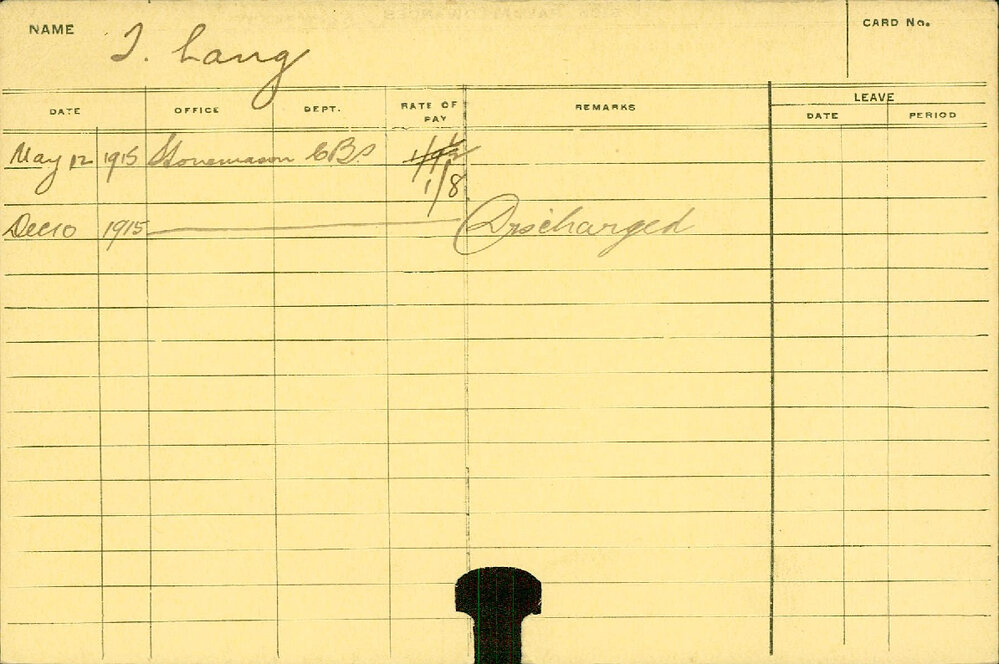 NAME T. Lang CARD No.
DATE OFFICE DEPT. RATE OF PAY REMARKS LEAVE
DATE PERIOD
May 12 1915 Stonemason CBs
1/8
Dec 10 1915 Discharged